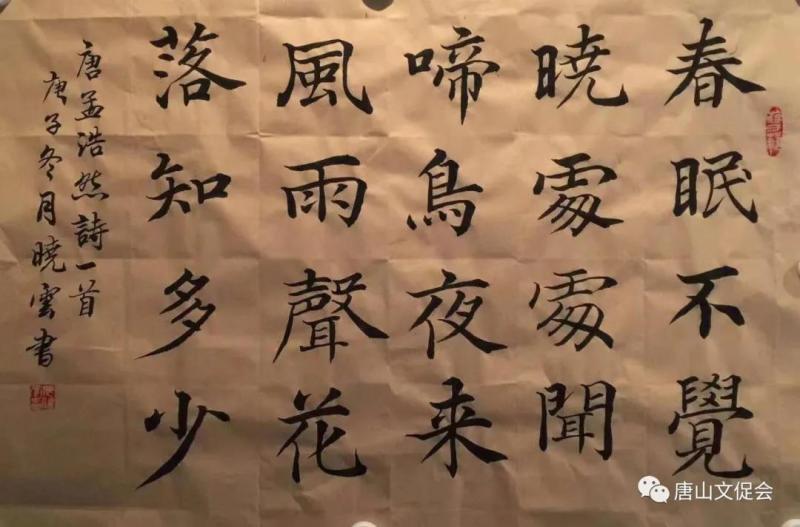 春眠不覺
暁處處聞
啼鳥夜来
風雨聲花
落知多少
唐孟浩然詩一首
庚子冬月曉雲書
唐山文促会